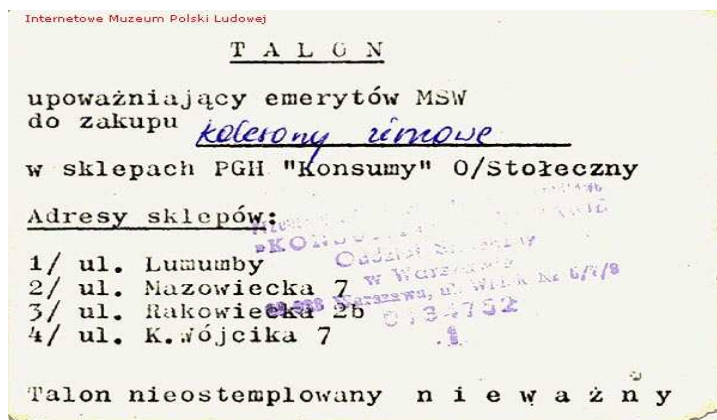 Internetowe Muzeum Polski Ludowej
T A L O N
upoważniający emerytów MSW
do zakupu kalesony zimowe
w sklepach PGH "Konsumy" O/Stołeczny
Adresy sklepów:
1/ ul. Lumumby
2/ ul. Mazowiecka 7
3/ ul. Rakowiecka 2b
4/ ul. K.Wójcika 7
w Warszawie
Warszawa, ul.
0134752
Talon nieostemplowany n i e w a ż n y